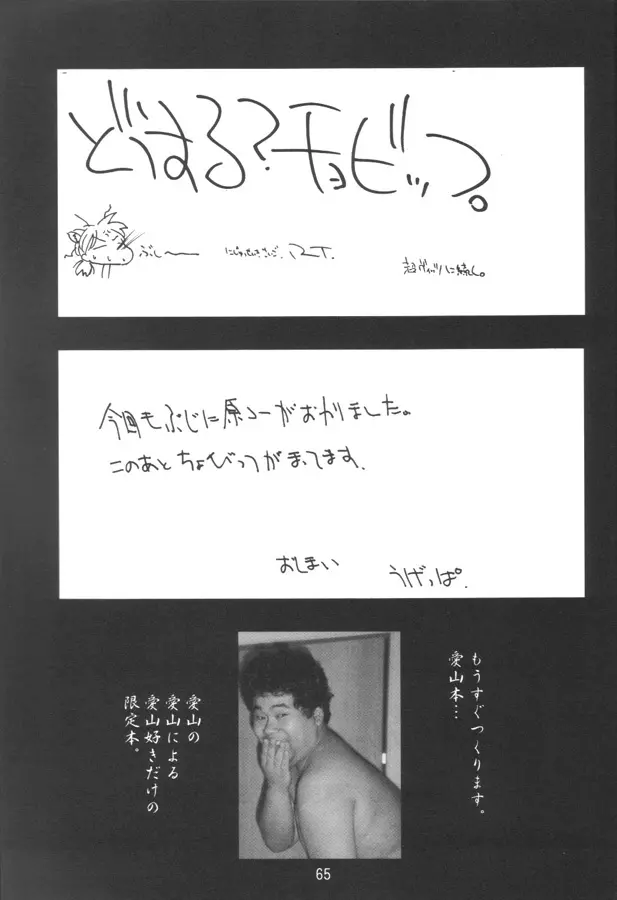 どうする?チョビッツ。
ぷしー
超ヴィッツに続く。
今回もぶじに原コーがおわりました。
このあとちょびっつがまってます
おしまい
うげっぱ。
もうすぐつくります。
愛山本…
愛山の
愛山による
愛山好きだけの
限定本。
65